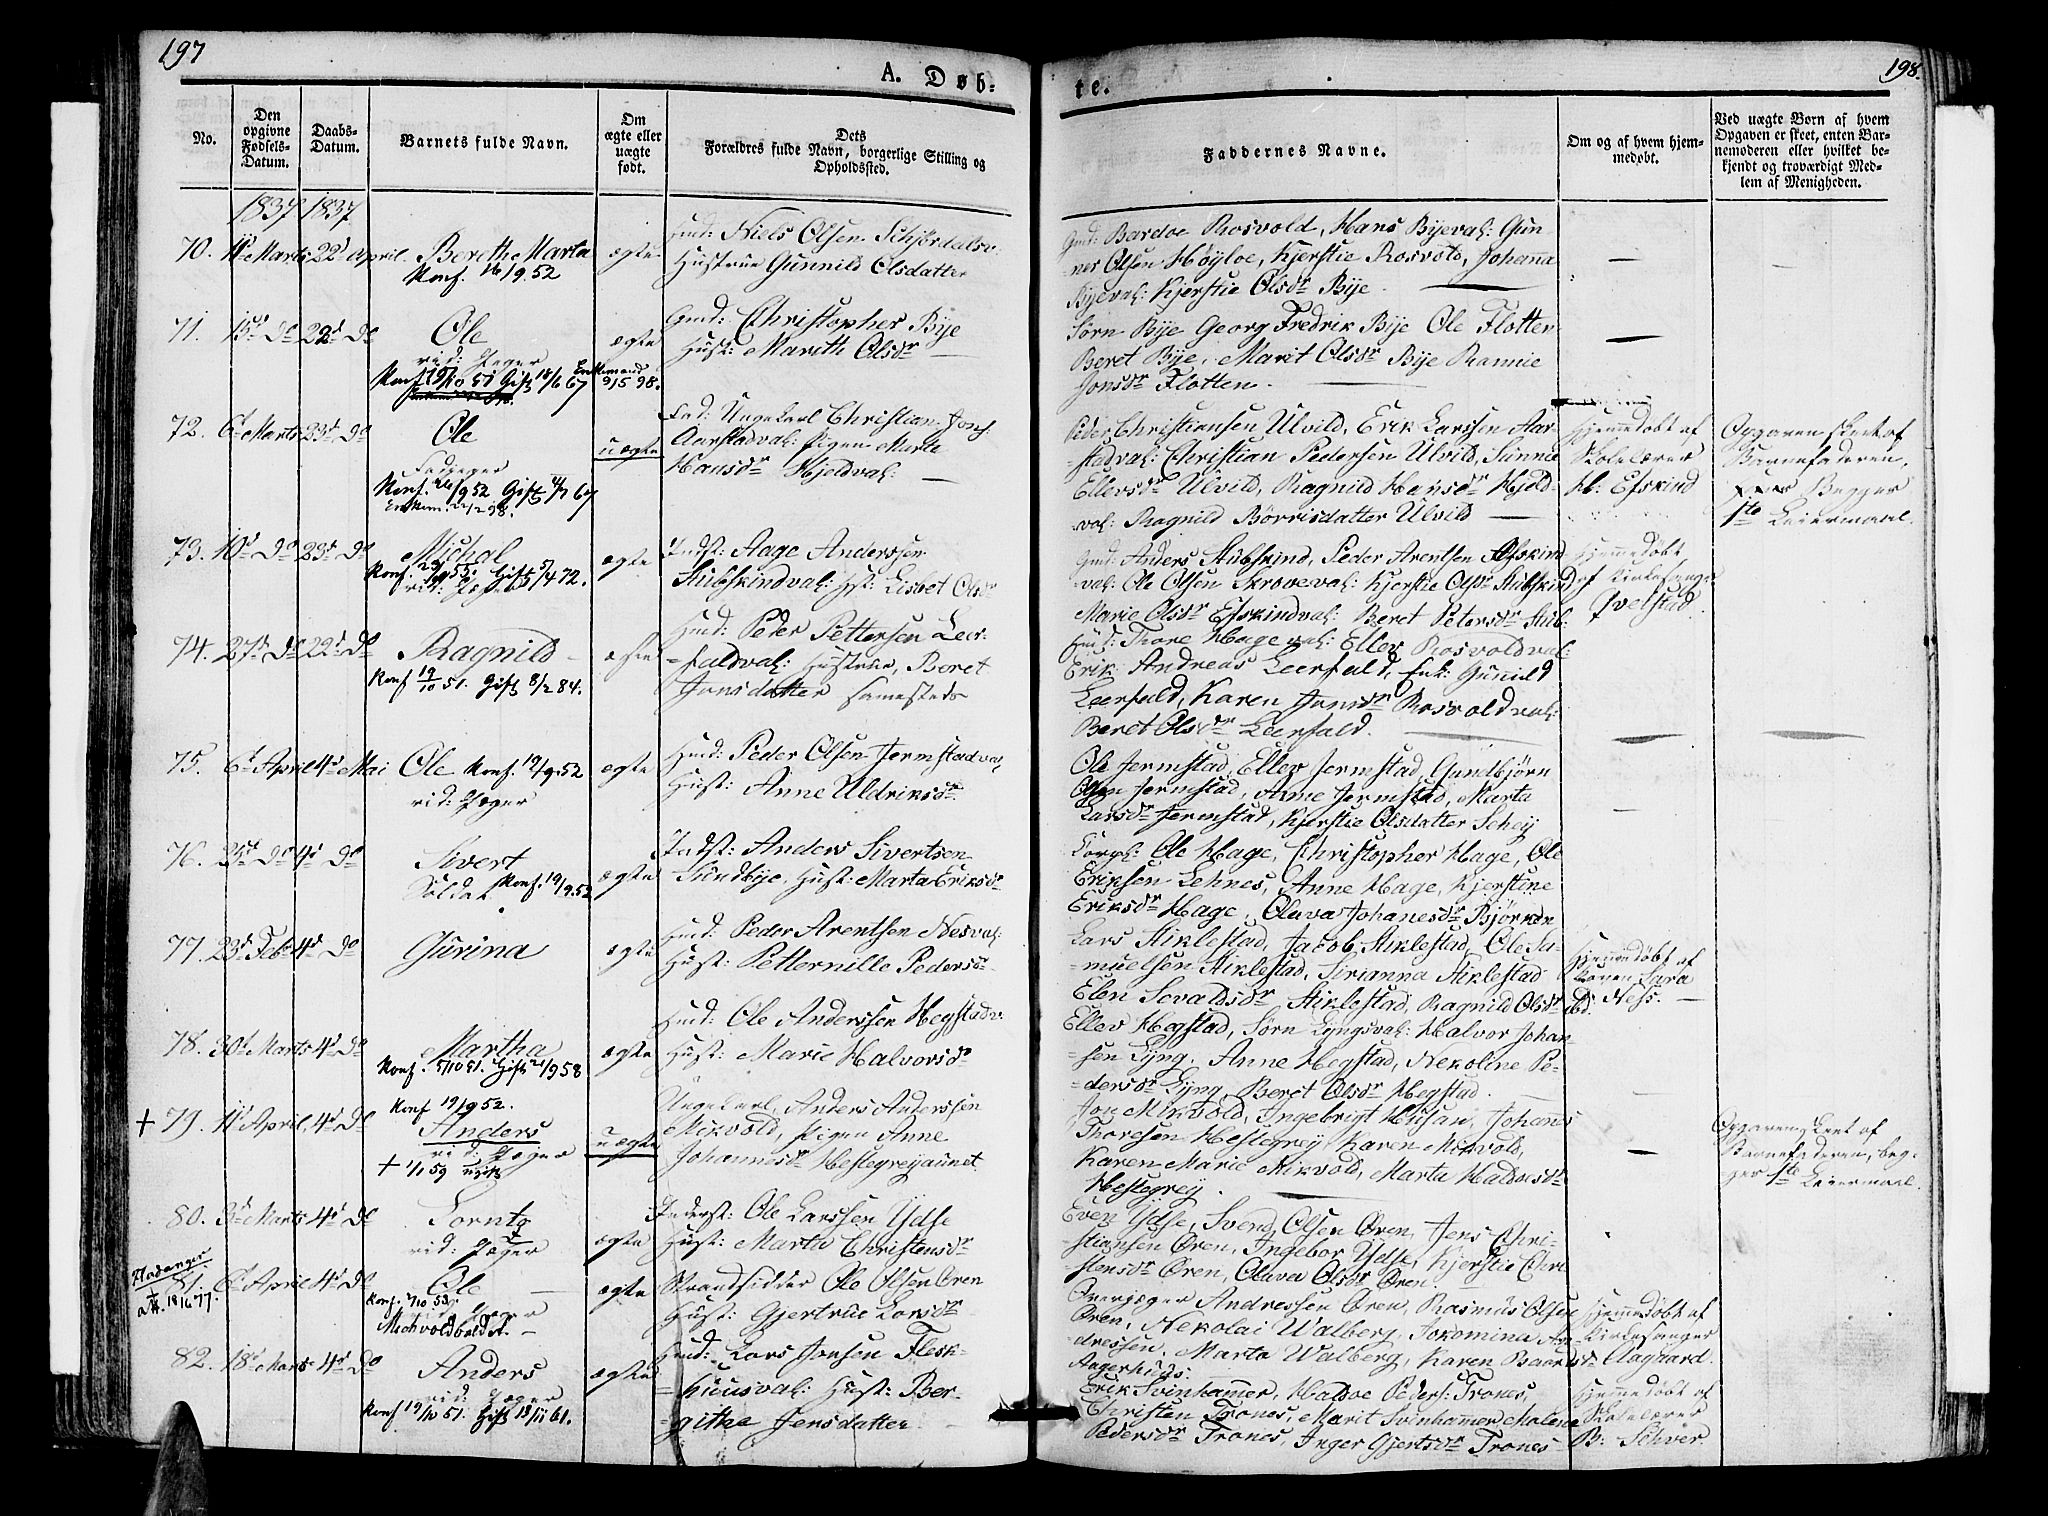 197
198.
A. Døb-
te.
No.
Den opgivne Fødsels-Datum.
Daabs-Datum.
Barnets fulde Navn.
Om ægte eller uægte født.
Dets Forældres fulde Navn, borgerlige Stilling og Opholdssted.
Faddernes Navne.
Om og af hvem hjem-medøbt.
Ved uægte Børn af hvem Opgaven er skeet, enten Bar-nemoderen eller hvilket be-kjendt og troværdigt Med-lem af Menigheden.
1837 1837
70. 11te Marts 22d April. Bereth Marta ægte
Konf. 16/9 52
Hmd: Niels Olsen
Hustrue Gunnild Olsdatter
Gmd: Bardoe Rosvold, Hans Byeval: Gun
-ner Olsen Høyloe, Kjerstie Rosvold, Johana
Byeval: Kjerstie Olsdr Bye
71. 15d Do 22d Do Ole ægte
Gift 18/6 67 Enkemand 9/5 98.
Gmd: Christopher Bye
Hust: Marith Olsdr
Sørn Bye Georg Fredrik Bye Ole Flotten
Beret Bye, Marit Olsdr Bye Rannie
Jonsdr Flotten.
72. 6t Marts 23d Do Ole uægte
Konf. 26/9 52 Gift 67
Enkem. 22/2 98.
Fad: Ungekarl Christian Jons:
Aarstadval: Pigen Marte
Hansdr Hjeldval:
Peder Christiansen Ulvild, Erik Larssen Aar-
-stadval: Christian Pedersen Ulvild, Sunnie
Ellersdr Ulvild, Ragnild Hansdr Hjeld-
val: Ragnild Børrisdatter Ulvild
Hjemmedøbt af
Skolelærer
H: Efskind
Opgaven skeet af
Barnefaderen,
Begges
1ste Leiermaal.
73. 10d Do 23d Do Michel ægte
Konf. Gift 5/4 72.
Indst: Aage Anderssen
Stubskindval: Hst: Lisbet Olsdr
Gmd: Anders Stubskind, Peder Arentsen Efskind
val: Ole Olsen Skroveval: Kjerstie Olsdr Stubskind
Marie Olsdr Efskindval: Beret Petersdr Stub:
Hjemmedøbt
af Kirkesanger
Qvelstad
74. 27d Do 22d Do Ragnild ægte
Konf 19/10 51. Gift 8/2 84.
Hmd: Peder Pettersen Leer-
-faldval: Hustrue, Beret
Jonsdatter samesteds
Hmd: Thore Hageval: Ellev Rosvoldval:
Erik Andreas Leerfald, Enk: Gunild
Leerfald, Karen Jonsdr Rosvoldval:
Beret Olsdr Leerfald.
75. 6t April 4d Mai Ole Konf. 19/9 52 ægte
rid: Jæger
Hmd: Peder Olsen Jermstadval
Hust: Anne Uldriksdr
Ole Jermstad, Ellev Jermstad, Gundbjørn
Olsen Jermstad, Anne Jermstad, Marta
Larsdr Jermstad, Kjerstie Olsdatter Schey
76. Do 4d Do Sivert ægte
Soldat Konf. 19/9 52
Indst: Anders Sivertsen
Sundbye, Hust: Marta Eriksdr
Korpl: Ole Hage, Christopher Hage, Ole
Eriksen Lehnes, Anne Hage, Kjerstine
Eriksdr Hage, Olava Johanesdr Bjørken
77. 23d Feb 4d Do Gurina ægte
Hmd: Peder Arentsen Nesval:
Hust: Petternille Pedersdr
Lars Stiklestad, Jacob Stiklestad, Ole Sa-
-muelsen Stiklestad, Serianna Stiklestad
Elen Sevaldsdr Stiklestad, Ragnild Olsdr ibd:
Hjemmedøbt af
Konen Sara
Ness.
78. 30d Marts 4d Do Martha ægte
Konf. 5/10 51. Gift 58
Hmd: Ole Anderssen Hegstadv:
Hust: Marie Halvorsdr
Ellev Hegstad, Sørn Lyngsval: Halvor Johan-
-sen Lyng, Anne Hegstad, Nekoline Pe-
-dersdr Lyng, Beret Olsdr Hegstad
+ 79. 11d April, 4d Do Anders uægte
Konf 19/9 52.
rid: Jæger
+ 1/1 59
Ungekarl, Anders Anderssen
Mikvold, Pigen Anne
Johannesdr Hestegreijaunet
Jon Mikvold, Ingebrigt Husan, Johanes
Thoresen Hestegrey, Karen Mikvold,
Karen Marie Mikvold, Marta Haldoesdr
Hestegrey.
Opgaven skeet af
Barnefaderen, beg-
ges 1ste Leiermaal.
80. 3d Marts 4d Do Lornts ægte
rid: Jæger
Inderst: Ole Larssen Ydse
Hust: Marta Christensdr
Even Ydse, Svend Olsen Øren, Jens Chri-
-stiansen Øren, Ingebor Ydse, Kjerstie Chri
stensdr Øren, Olava Olsdr Øren
81. 6t April 4d Do Ole ægte
att. 18/6 77.
Strandsidder Ole Olsen Øren
Hust: Gjertrue Larsdr
Overjæger Andressen Øren, Rasmus Olsen
Øren, Nekolai Walberg, Jokomina An-
-dressen, Marta Walberg, Karen Baardsdr
Aagerhuus:
Hjemmedøbt af
Kirkesanger
Aagaard.
82. 18d Marts 4d Do Anders ægte
rid: Jæger
Konf 19/10 51. Gift 13/11 61.
Hmd: Lars Jonsen Flesk-
-huusval: Hust: Ber-
-githe Jensdatter
Erik Svinhammer, Haldoe Peders: Trones,
Christen Trones, Marit Svinhammer, Malene
Pedersdr Trones, Inger Gjertsdr Trones
Hjemmedøbt af
Skolelærer
B: Schver.